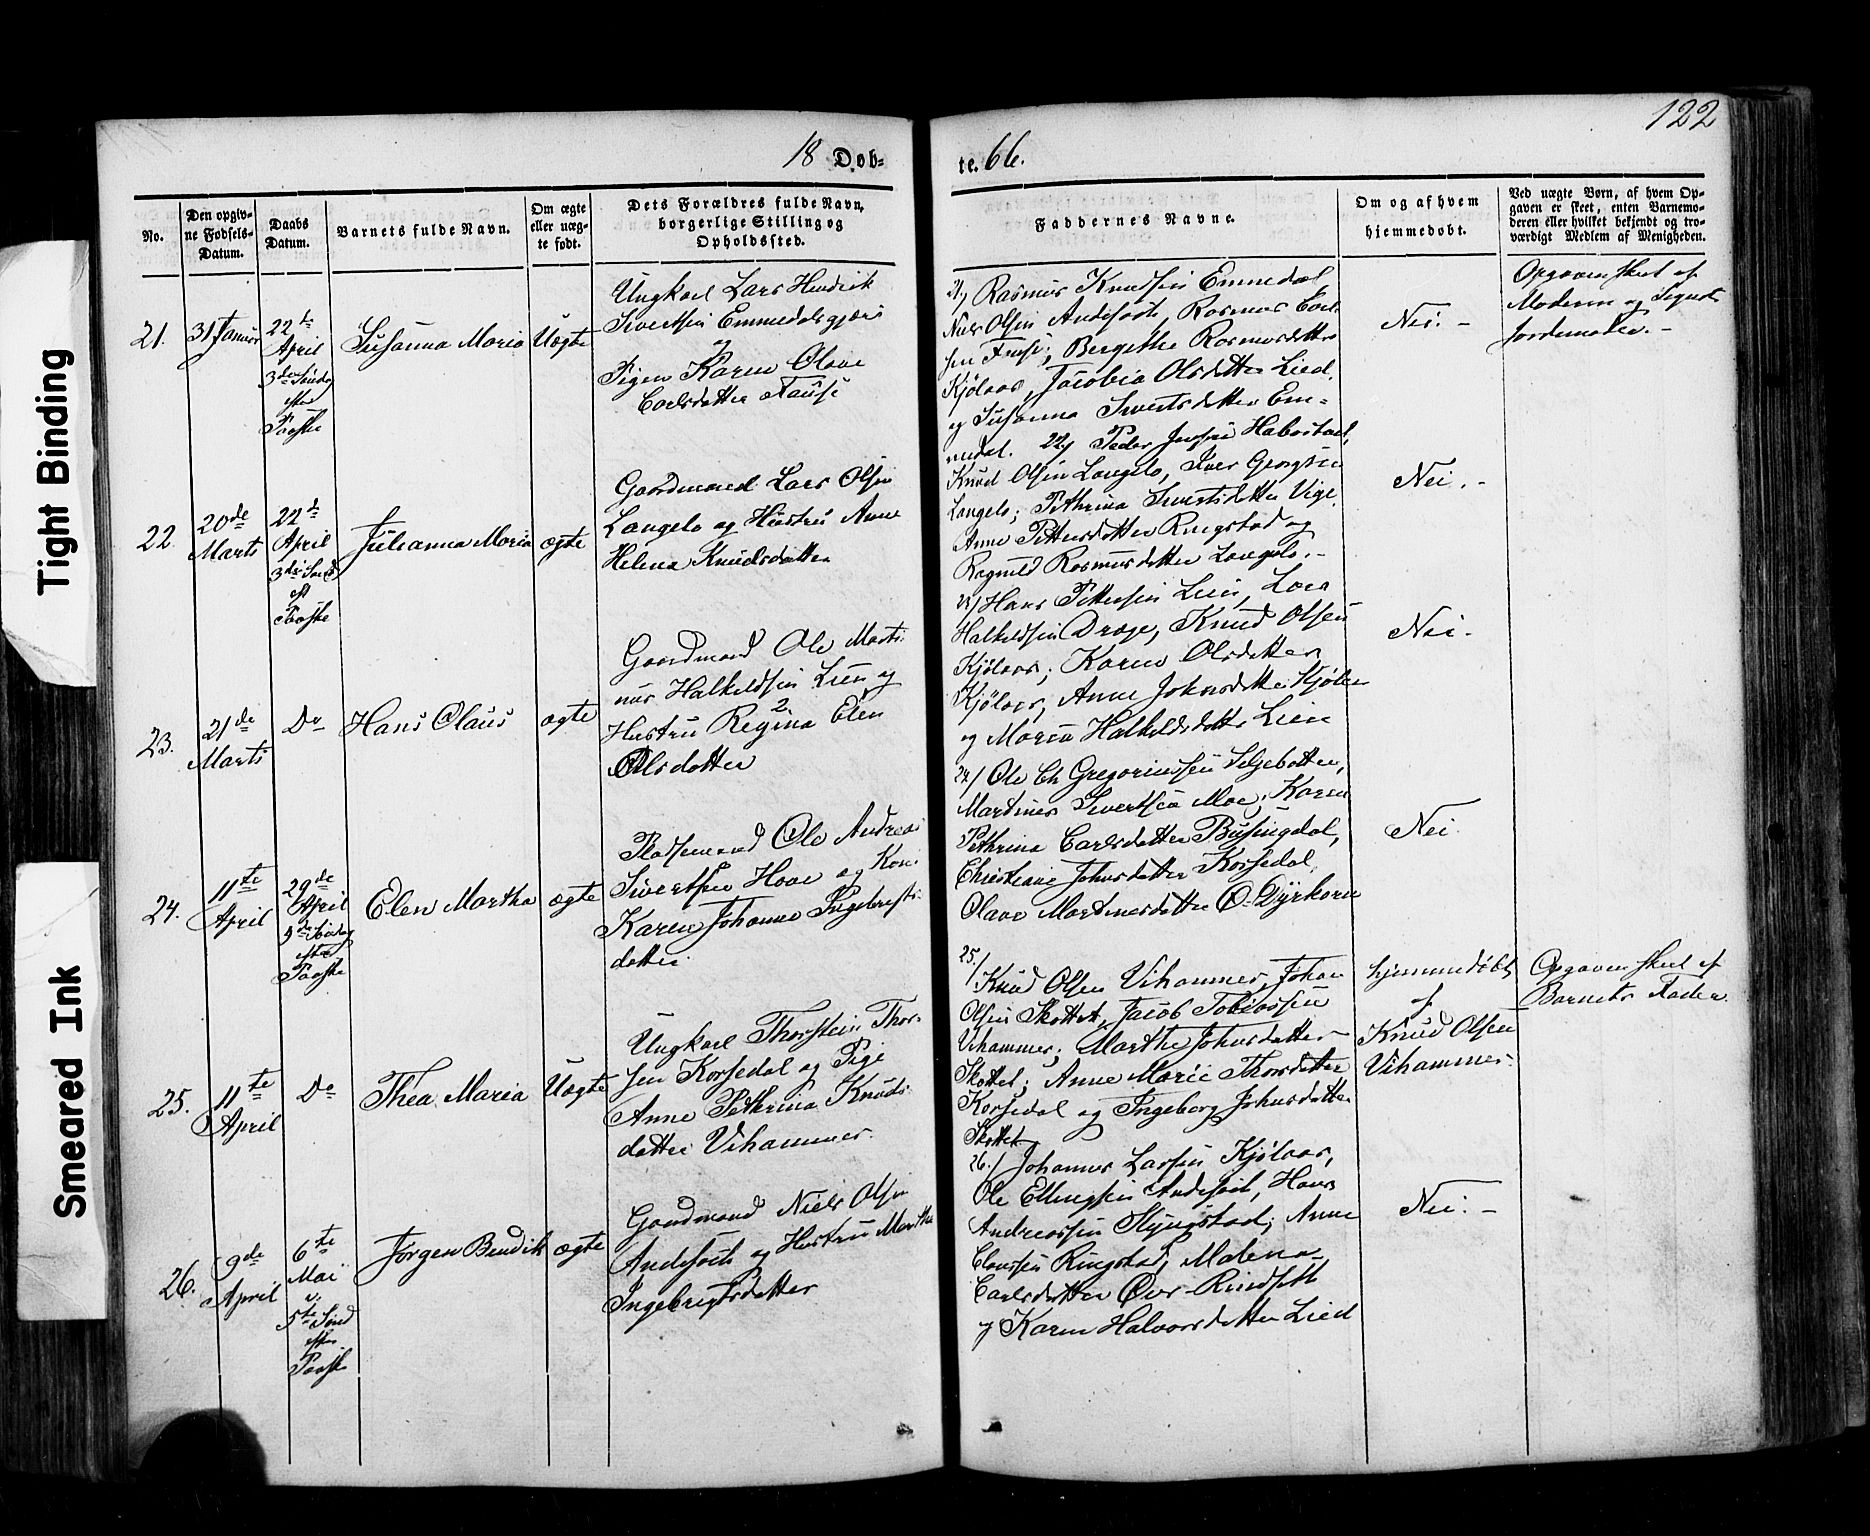 122
18 Døb-
te. 66.
No.
Den opgiv-
ne Fødsels-
Datum.
Daabs
Datum.
Barnets fulde Navn.
Om ægte
eller uæg-
te født.
Dets Forældres fulde Navn,
borgerlige Stilling og
Opholdssted.
Faddernes Navne.
Om og af hvem
hjemmedøbt.
Ved uægte Børn, af hvem Op-
gaven er skeet, enten Barnemo-
deren eller hvilket bekjendt og tro-
værdigt Medlem af Menigheden.
21.
31 Januar
22de
April
3die Sønd
efter
Paaske
Susanna Maria
Uægte
Ungkarl Lars Hendrik
Sivertsen Emmedalsgjære
og
Pigen Karen Olave
Carlsdatter Fause
21/ Rasmus Knudsen Emmedal
Niels Olsen Andesoth, Rasmus Carl-
sen Fause; Bergithe Rasmusdatter
Kjølaas, Jacobia Olsdatter Lied,
og Susanna Sivertsdatter Em-
medal.
Nei. -
Opgaven skeet af
Moderen og
Jordemoder. -
22.
20de
Marts
22de
April
3die Sønd
eft
Paaske
Julianna Maria
ægte
Gaardmand Lars Olsen
Langelo og Hustru Anne
Helena Knudsdatter
22/ Peder Jensen Habostad,
Knud Olsen Langelo, Iver Georgsen
Langelo; Pethrina Sivertsdatter Vige,
Anne Pettersdatter Ringstad og
Ragnild Rasmusdatter Langelo. -
Nei. -
23.
21de
Marts
Do
Hans Olaus
ægte
Gaardmand Ole Marti-
nus Halkeldsen Lien og
Hustru Regina Elen
2
Olsdatter
23/ Hans Pettersen Lien, Lars
Halkeldsen Drage, Knud Olsen
Kjølaas; Karen Olsdatter
Kjølaas, Anne Johnsdatter Kjølaas
og Maria Halkeldsdatter Lien
Nei -
24.
11te
April
29de
April
4de Søndag
efter
Paaske
Elen Martha
ægte
Pladsemand Ole Andreas
Sivertsen Hove og Kone
Karen Johanne Ingebrigts-
datter
24/ Ole Ch Gregoriussen Seljebotten,
Martinus Sivertsen Moe; Karen
Pethrina Carlsdatter Busingdal,
Christiane Johnsdatter Korsedal,
Olave Martinusdatter Ø-Dyrkorn
Nei.
25.
11te
April
Do
Thea Maria
Uægte
Ungkarl Thorstein Thor-
sen Korsedal og Pige
Anne Pethrina Knuds-
datter Vihammer.
25/
Knud Olsen Vihammer, Johan
Olsen Skottet, Jacob Tobiassen
Vihammer; Marthe Johnsdatter
Skottet; Anne Marie Thorsdatter
Korsedal og Ingeborg Johnsdatter
Skottet
hjemmedøbt
af
Knud Olsen
Vihammer.
Opgaven skeet af
Barnets Fader
26.
9de
April
6te
Mai
5te Sønd
efter
Paaske
Jørgen Bendik
ægte
Gaardmand Niels Olsen
Andesoth og Hustru Martha
Ingebrigtsdatter
26./ Johannes Larsen Kjølaas,
Ole Ellingsen Andesoth, Hans
Andreassen Slyngstad; Anne
Ringstad, Malena
Carlsdatter Øvr-Rindseth
og Karen Halvorsdatter Lied
Nei. -
Tight Binding
Smeared Ink